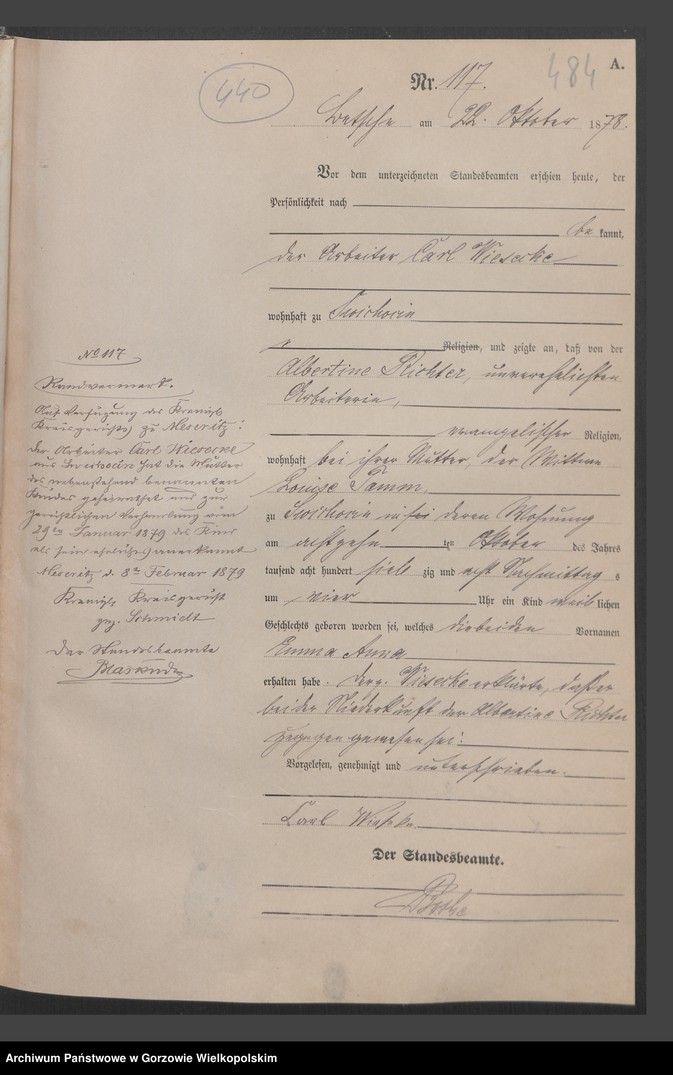 440
484
A.
Nr. 117.
Betsche am 22. Oktober 1878.
Vor dem unterzeichneten Standesbeamten erschien heute, der
Persönlichkeit nach
be kannt,
der Arbeiter Carl Wiesecke
wohnhaft zu
Religion, und zeigte an, daß von der
Albertine Richter, unverehelichten
Arbeiterin,
evangelischer Religion,
wohnhaft bei ihrer Mutter, der Wittwe
Louise Damm,
zu in deren Wohnung
am achtzehn ten Oktober des Jahres
tausend acht hundert sieb zig und acht Nachmittag s
um vier Uhr ein Kind weib lichen
Geschlechts geboren worden sei, welches die beiden Vornamen
Emma Anna
erhalten habe. Der Wiesecke erklärte, daß er
bei der Niederkunft der Albertine Richter
zugegen gewesen sei.
Vorgelesen, genehmigt und unterschrieben.
Carl
Der Standesbeamte.
No 117
Randvermerk.
Auf Verfügung des Königl.
Kreisgerichts zu Meseritz:
der Arbeiter Carl Wiesecke
aus hat die Mutter
des nebenstehend benannten
Kindes geheirathet und zur
gerichtlichen Verhandlung vom
29ten Januar 1879 das Kind
als sein eheliches anerkannt
Meseritz d. 8ten Februar 1879
Königl. Kreisgericht
gez. Schmidt
Der Standesbeamte
Archiwum Państwowe w Gorzowie Wielkopolskim